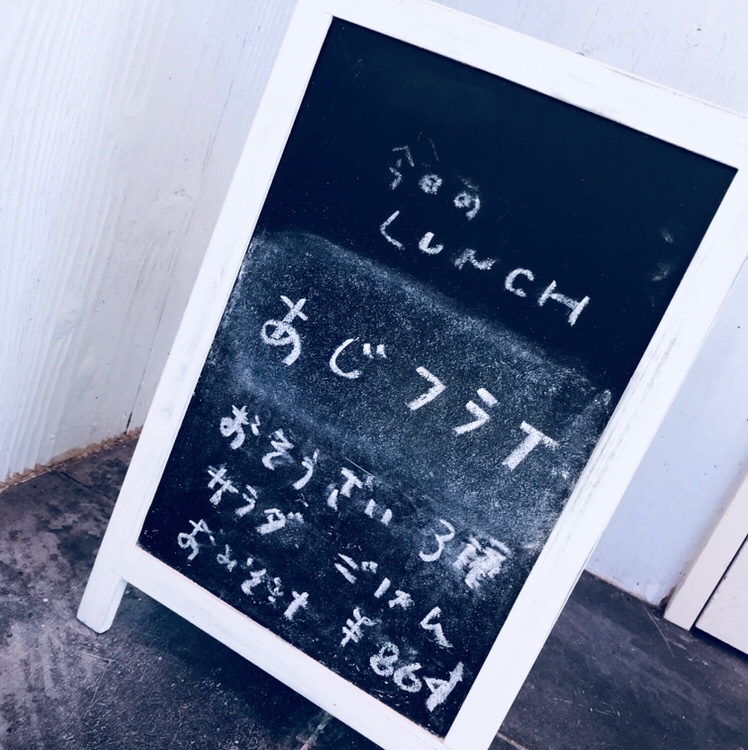 今日の
LUNCH
あじフライ
おそうざい 3種
サラダ ごはん
おみそ汁 ¥864